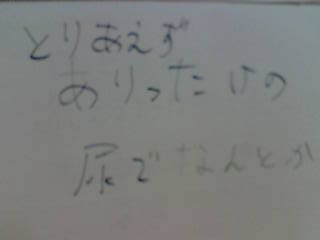 とりあえず
ありったけの
尿でなんとか